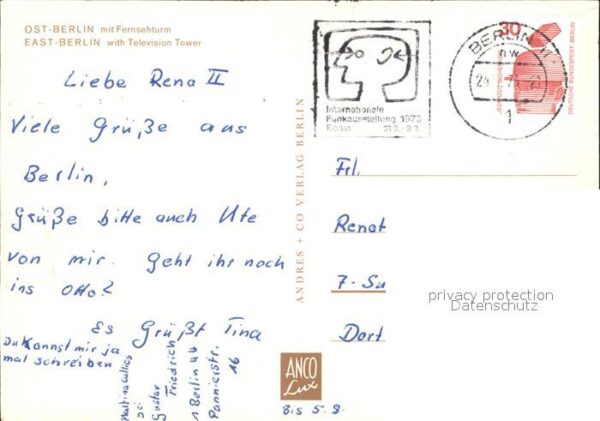 OST-BERLIN mit Fernsehturm
EAST-BERLIN with Television Tower
Liebe Rena II
Viele Grüße aus
Berlin.
Grüße bitte auch Ute
von mir. Geht ihr noch
ins Otto?
Es Grüßt Tina
Du kannst mir ja
mal schreiben
bei
Gustav
Friedrich
1 Berlin 44
Pannierstr.
16
Bis 5. 9.
ANDRES + CO VERLAG BERLIN
ANCO
Lux
Internationale
Funkausstellung 1973
Berlin 31.8.-9.9.
BERLIN 11
nw
1
30
DEUTSCHE BUNDESPOST BERLIN
Frl.
Renat
7-Su
Dort
privacy protection
Datenschutz